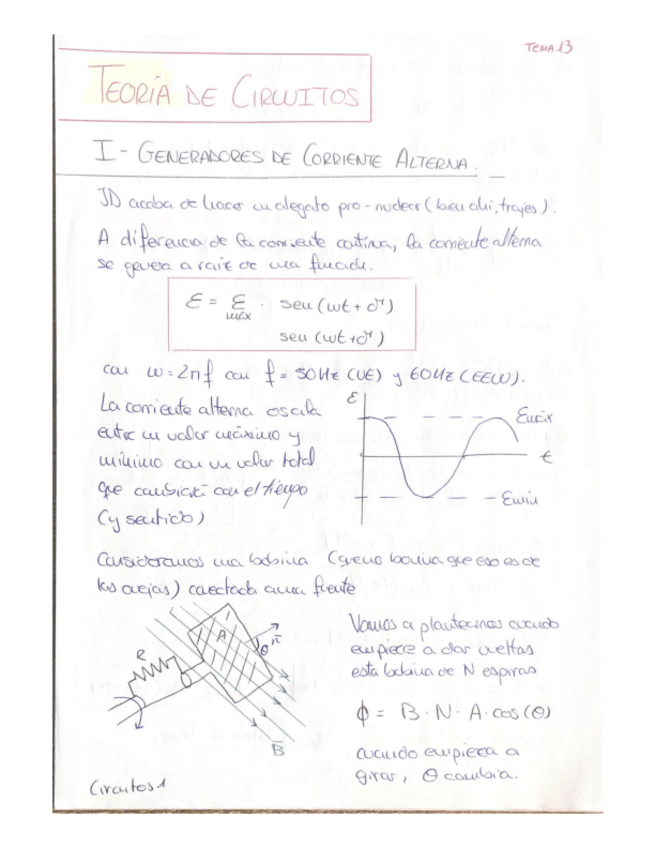 TEMA 13
TEORÍA DE CIRCUITOS
I - GENERADORES DE CORRIENTE ALTERNA.
JD acaba de hacer un alegato pro-nuclear (bien ahí, trajes).
A diferencia de la corriente continua, la corriente alterna
se genera a raíz de una función.
ε = ε máx · sen (wt + δ)
sen (wt + δ)
con w = 2πf con f = 50Hz (UE) y 60Hz (EEUU).
La corriente alterna oscila
entre un valor máximo y
mínimo con un valor total
que cambiará con el tiempo
(y sentido)
ε
εmáx
t
εmin
Consideramos una bobina (que no bovina que eso es de
las ovejas) conectada a una fuente
R
A
θ
n
B
Vamos a plantearnos cuando
empiece a dar vueltas
esta bobina de N espiras
ϕ = B · N · A · cos (θ)
cuando empieza a
girar, θ cambia.
Circuitos 1